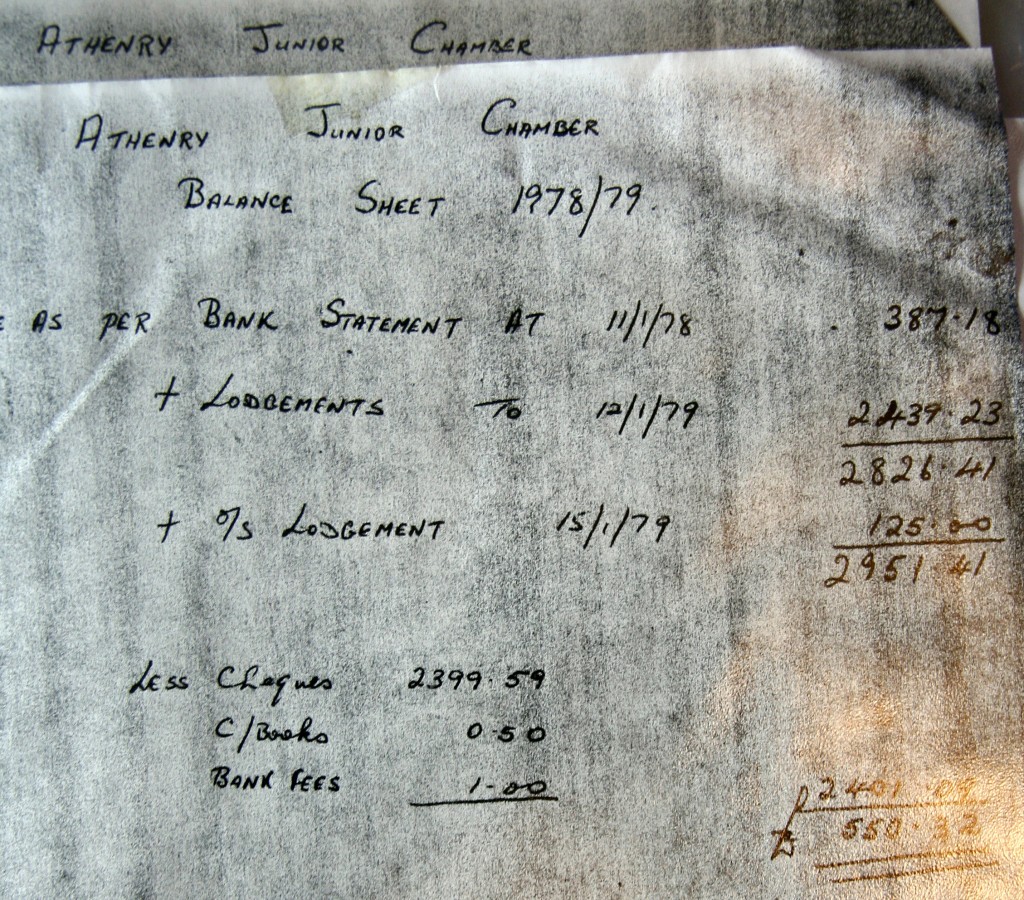 ATHENRY JUNIOR CHAMBER
ATHENRY JUNIOR CHAMBER
BALANCE SHEET 1978/79.
E AS PER BANK STATEMENT AT 11/1/78 387.18
+ LODGEMENTS TO 12/1/79 2439.23
2826.41
+ O/S LODGEMENT 15/1/79 125.00
2951.41
LESS CHEQUES 2399.59
C/BOOKS 0.50
BANK FEES 1.00
2401.09
550.32